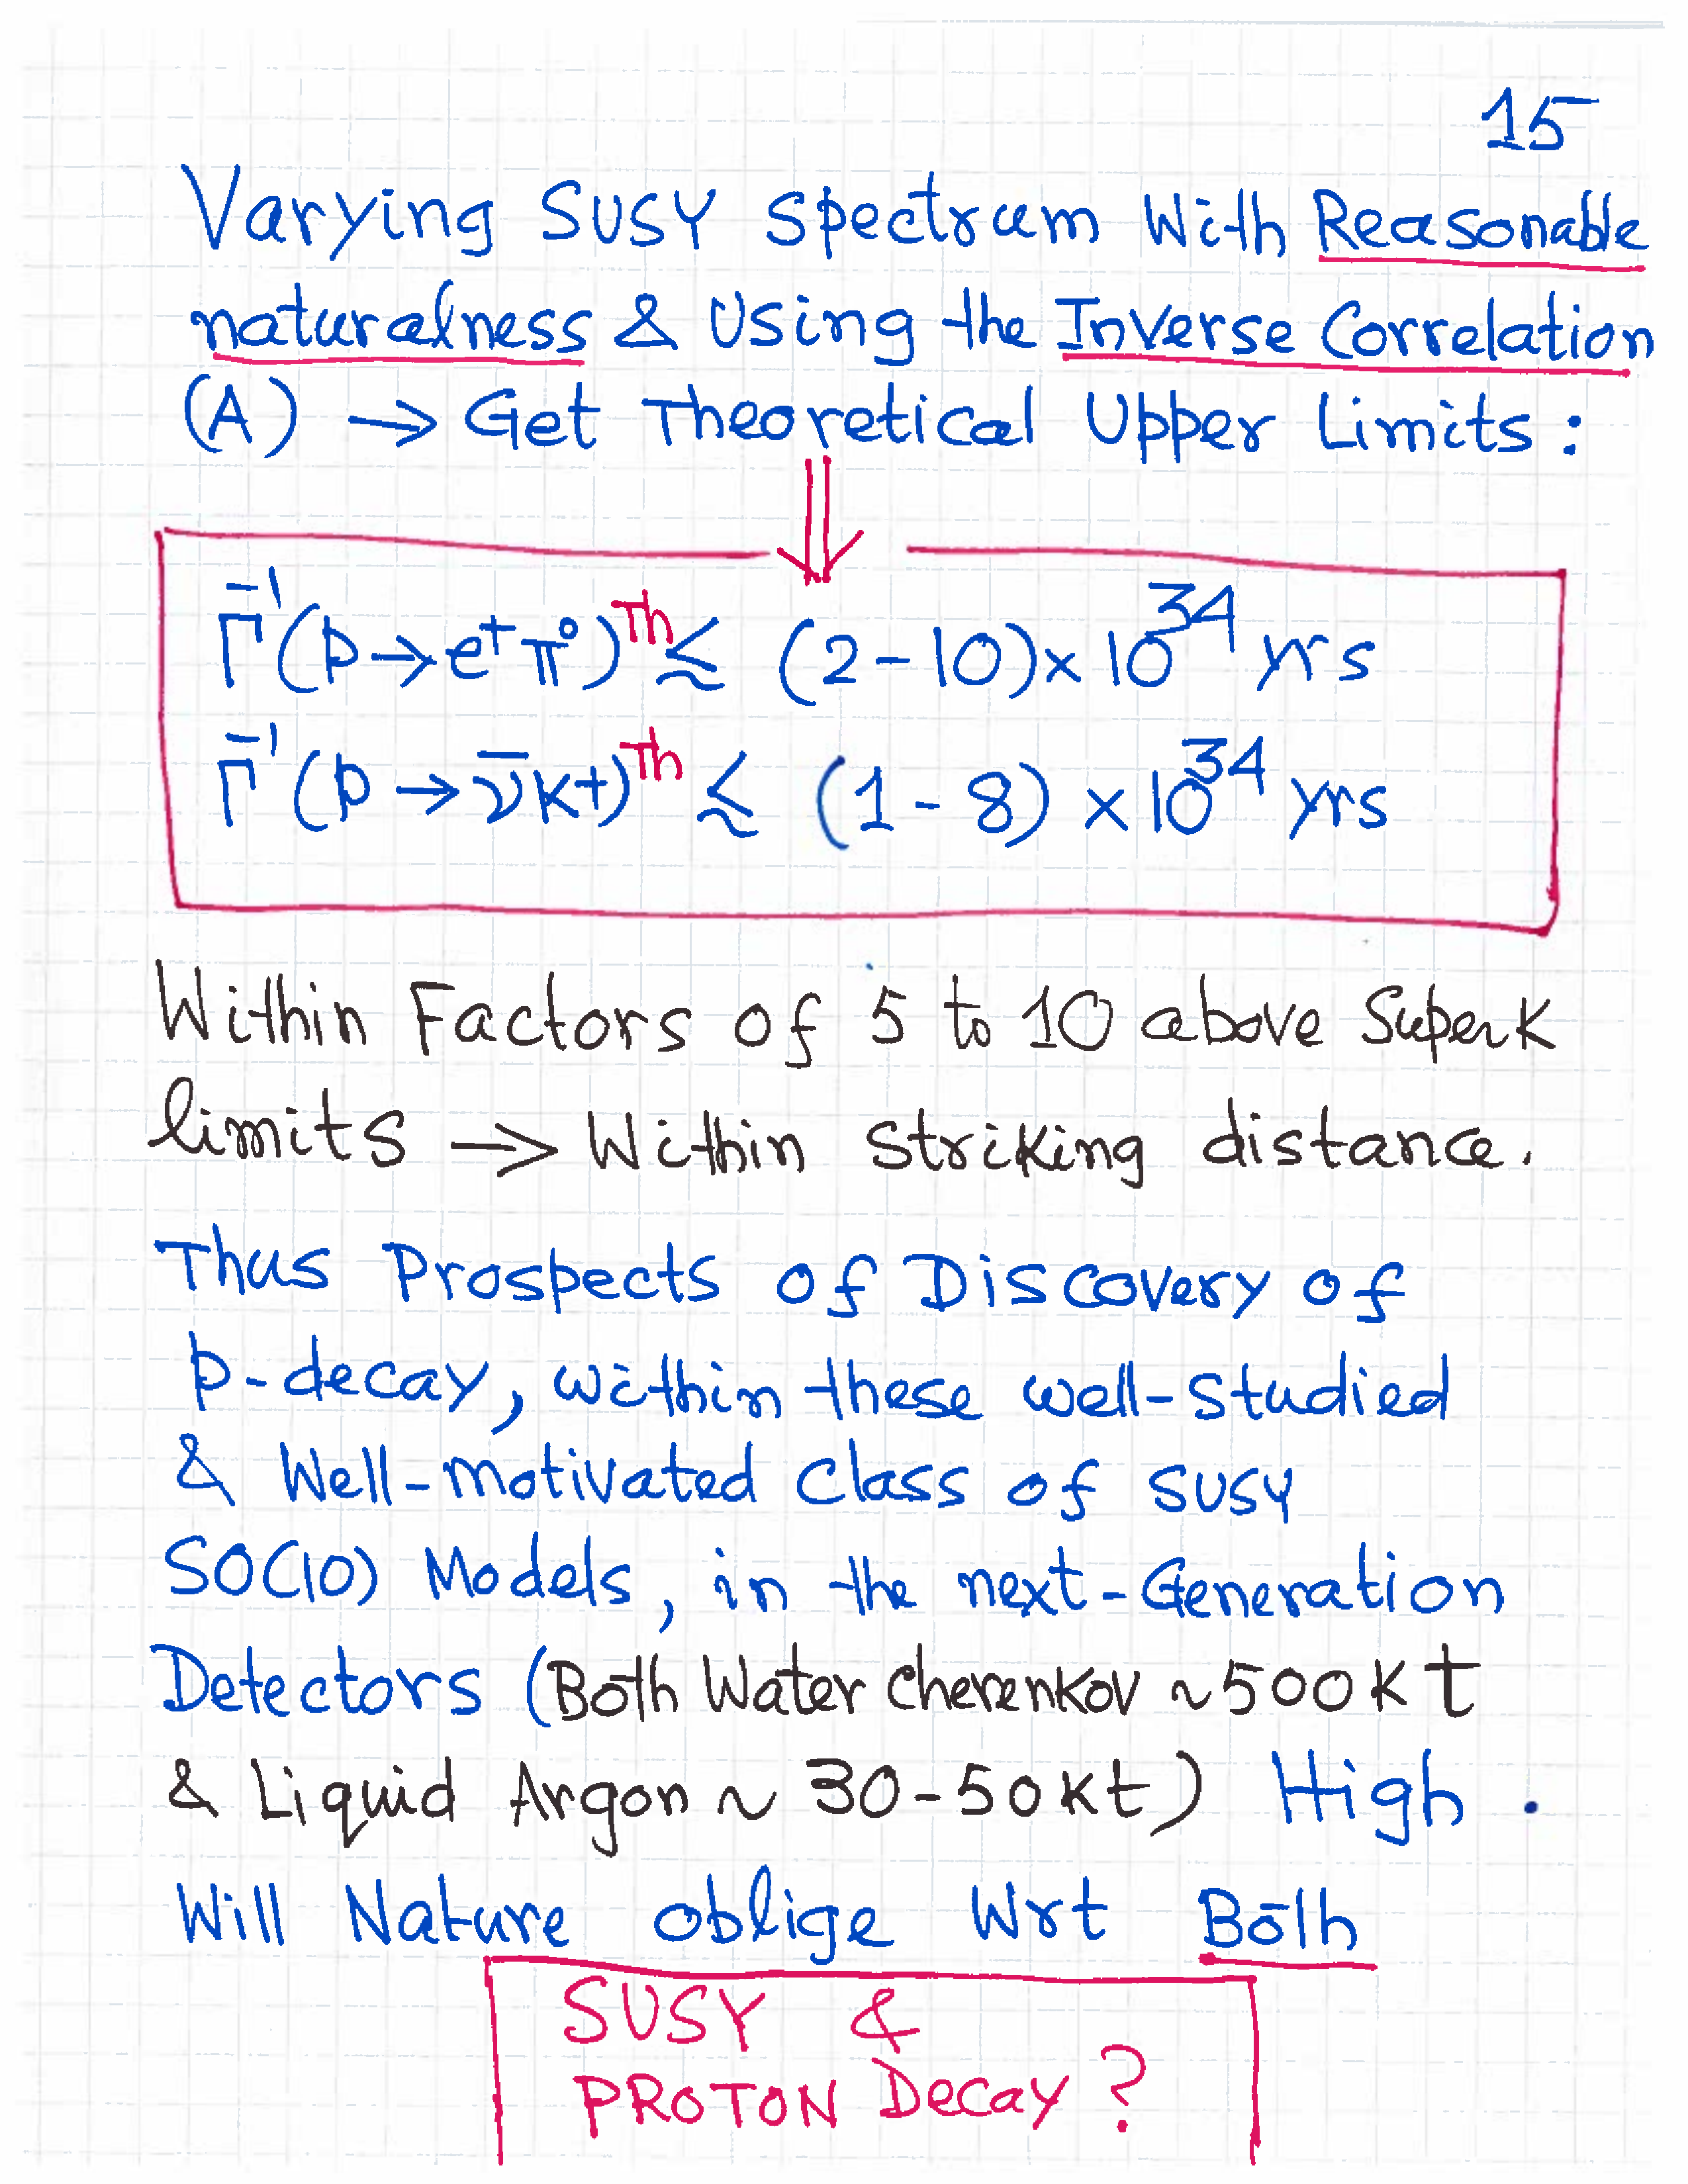 15
Varying SUSY Spectrum With Reasonable
naturalness & Using the Inverse Correlation
(A) → Get Theoretical Upper Limits :
⇓
Γ⁻¹(p → e⁺π⁰)ᵀʰ ≲ (2-10) × 10³⁴ yrs
Γ⁻¹(p → ν̄K+)ᵀʰ ≲ (1-8) × 10³⁴ yrs
Within Factors of 5 to 10 above SuperK
limits → Within Striking distance.
Thus Prospects of Discovery of
p-decay, within these well-studied
& Well-motivated Class of SUSY
SO(10) Models, in the next-Generation
Detectors (Both Water Cherenkov ~500Kt
& Liquid Argon ~ 30-50Kt) High .
Will Nature oblige Wrt Both
SUSY &
PROTON Decay ?